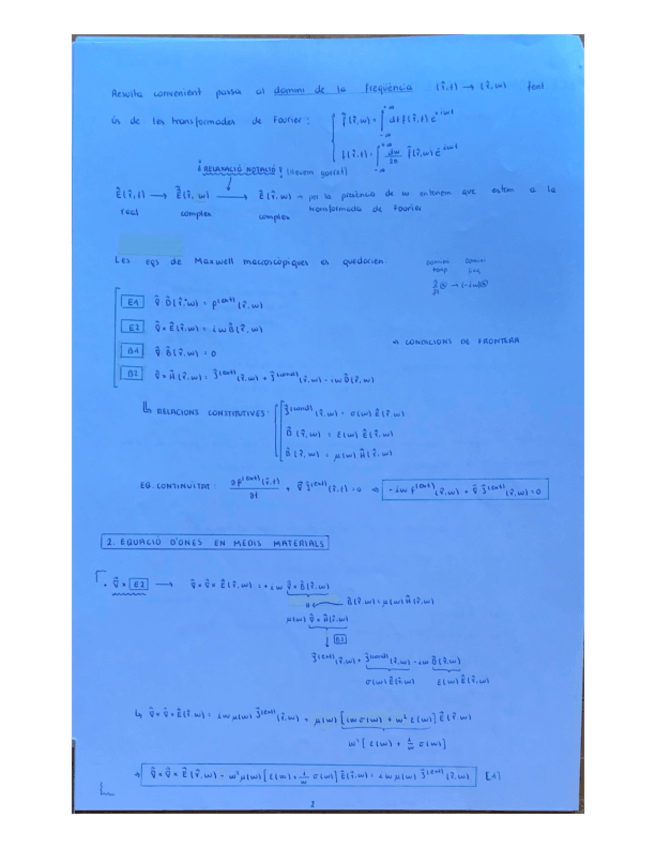 Resulta convenient passar al domini de la freqüència (r⃗,t) → (r⃗,ω) fent
ús de les transformades de Fourier: { f̃(r⃗,ω) = ∫_{-∞}^{+∞} dt f(r⃗,t) e^{iωt}
f(r⃗,t) = ∫_{-∞}^{+∞} dω/2π f̃(r⃗,ω) e^{-iωt}
¡ RELAXACIÓ NOTACIÓ ! (traiem gorret)
E⃗(r⃗,t) → E⃗̃(r⃗,ω) → E⃗(r⃗,ω) → per la presència de ω entenem que estem a la
real complex complex transformada de Fourier
Les eqs de Maxwell macroscòpiques es quedarien:
domini temp domini freq
∂/∂t ⊗ → (-iω)⊗
E1 ∇⃗·D⃗(r⃗,ω) = ρ^(ext)(r⃗,ω)
E2 ∇⃗×E⃗(r⃗,ω) = iωB⃗(r⃗,ω)
B1 ∇⃗·B⃗(r⃗,ω) = 0
CONDICIONS DE FRONTERA
B2 ∇⃗×H⃗(r⃗,ω) = J⃗^(ext)(r⃗,ω) + J⃗^(cond)(r⃗,ω) - iωD⃗(r⃗,ω)
↳ RELACIONS CONSTITUTIVES: { J⃗^(cond)(r⃗,ω) = σ(ω) E⃗(r⃗,ω)
D⃗(r⃗,ω) = ε(ω) E⃗(r⃗,ω)
B⃗(r⃗,ω) = μ(ω) H⃗(r⃗,ω)
EQ. CONTINUÏTAT: ∂ρ^(ext)(r⃗,t)/∂t + ∇⃗·J⃗^(ext)(r⃗,t) = 0 → -iωρ^(ext)(r⃗,ω) + ∇⃗·J⃗^(ext)(r⃗,ω) = 0
2. EQUACIÓ D'ONES EN MEDIS MATERIALS
• ∇⃗× E2 → ∇⃗×∇⃗×E⃗(r⃗,ω) = +iω ∇⃗×B⃗(r⃗,ω)
B⃗(r⃗,ω) = μ(ω) H⃗(r⃗,ω)
μ(ω) ∇⃗×H⃗(r⃗,ω)
↓ B2
J⃗^(ext)(r⃗,ω) + J⃗^(cond)(r⃗,ω) - iωD⃗(r⃗,ω)
σ(ω)E⃗(r⃗,ω) ε(ω)E⃗(r⃗,ω)
↳ ∇⃗×∇⃗×E⃗(r⃗,ω) = iωμ(ω) J⃗^(ext)(r⃗,ω) + μ(ω) [iωσ(ω) + ω²ε(ω)] E⃗(r⃗,ω)
ω² [ε(ω) + i/ω σ(ω)]
→ ∇⃗×∇⃗×E⃗(r⃗,ω) - ω²μ(ω) [ε(ω) + i/ω σ(ω)] E⃗(r⃗,ω) = iωμ(ω) J⃗^(ext)(r⃗,ω) [1]
2